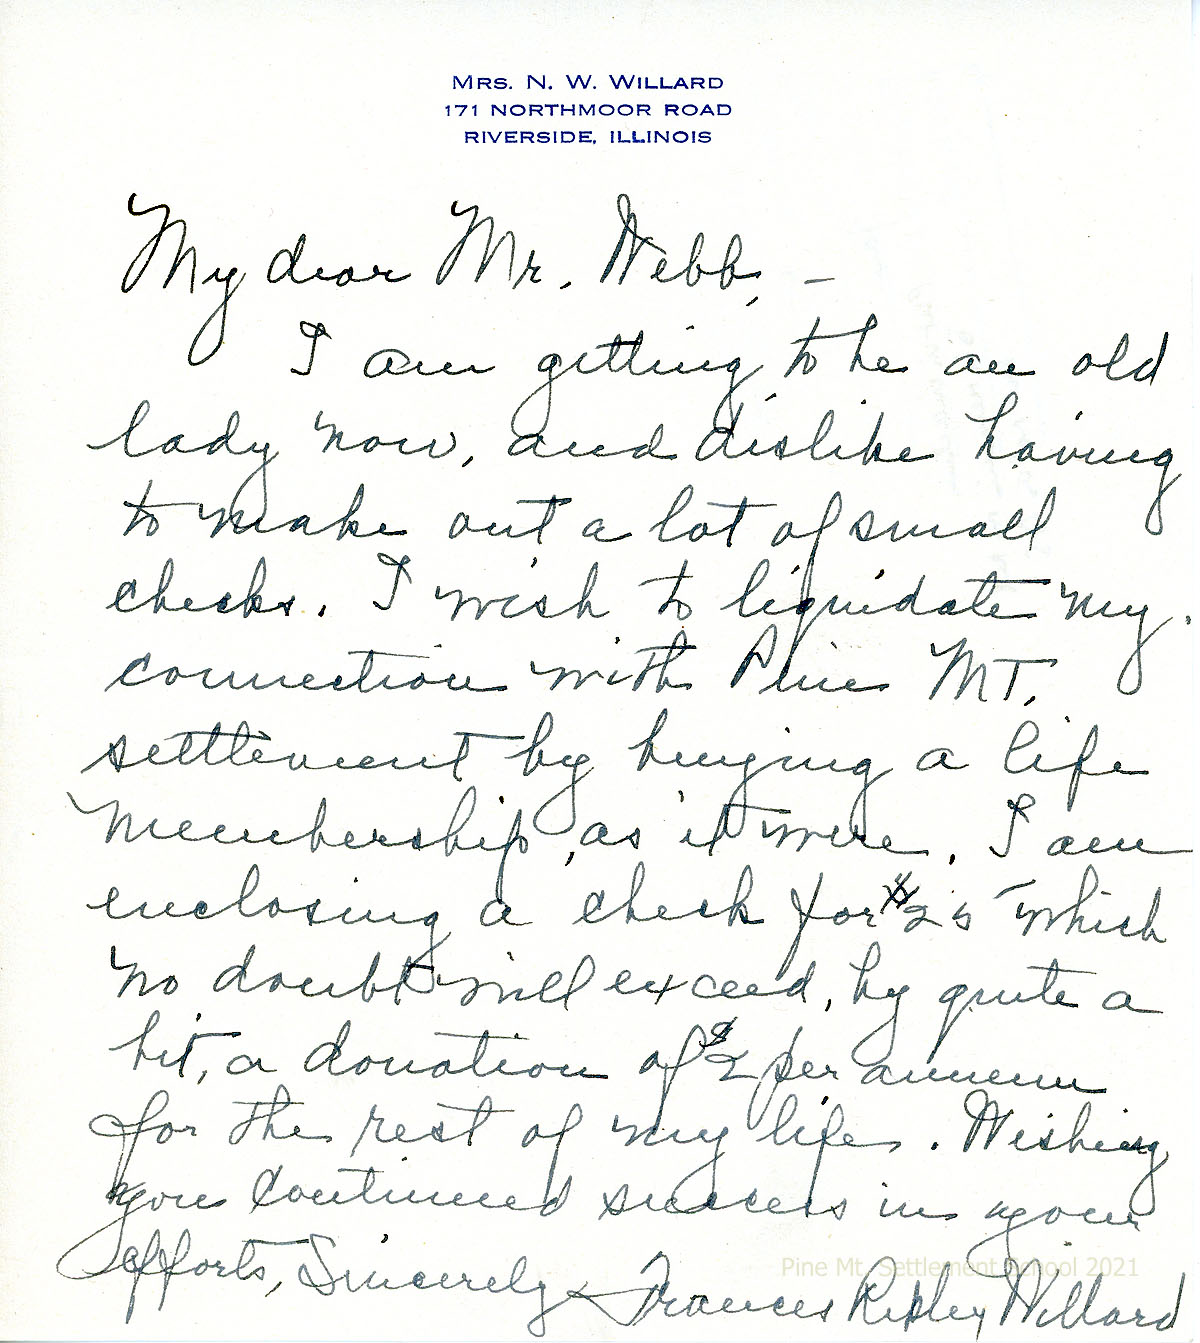 MRS. N. W. WILLARD
171 NORTHMOOR ROAD
RIVERSIDE, ILLINOIS
My dear Mr. Webb, –
I am getting to be an old
lady now, and dislike having
to make out a lot of small
checks. I wish to liquidate my
connection with Pine MT.
settlement by buying a life
membership, as it were. I am
enclosing a check for $25 which
no doubt will exceed, by quite a
bit, a donation of $2 per annum
for the rest of my life. Wishing
you continued success in your
efforts, Sincerely Frances Ripley Willard
Pine Mt. Settlement School 2021